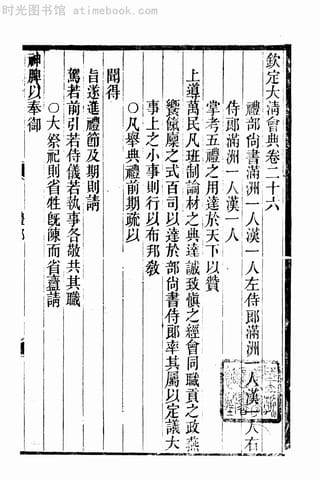 时光图书馆 - atimebook.com
欽定大清會典卷二十六
禮部尚書滿洲一人漢一人左侍郎滿洲一人漢一人右
侍郎滿洲一人漢一人
掌考五禮之用達於天下以贊
上導萬民凡班制論材之典達誠致愼之經會同職貢之政燕
饗餼廩之式百司以達於部尚書侍郎率其屬以定議大
事上之小事則行以布邦敎
○凡舉典禮前期疏以
聞得
旨遂進禮節及期則請
駕若前引若侍儀若執事各敬共其職
○大祭祀則省牲旣陳而省齍請
神牌以奉御